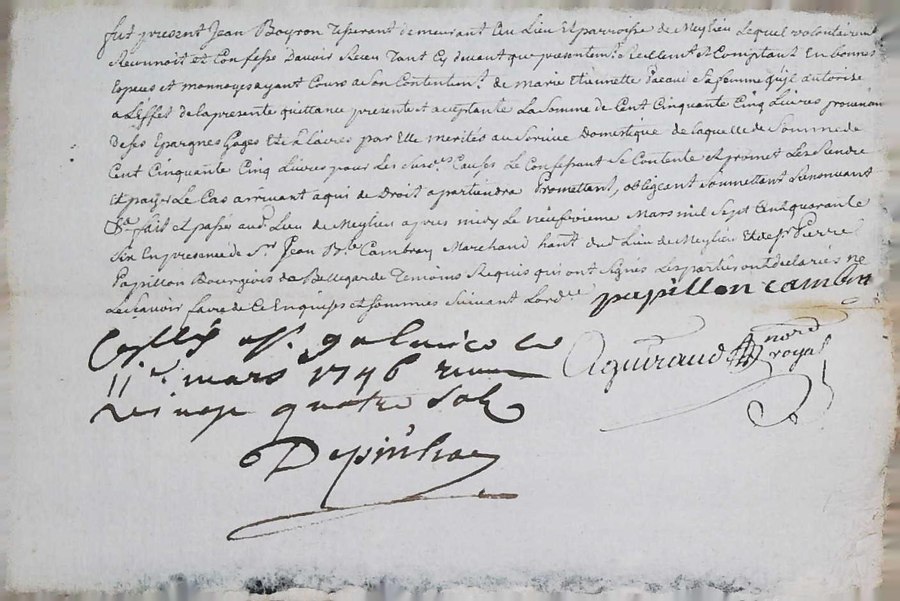 fut present Jean Boyron Tisserant demeurant au Lieu Et parroisse de Meylieu Lequel volontairemt
Reconnoit et Confesse Davoir Receu Tant Cy devant que presentemt Reellemt Et Comptant En bonnes
Especes et monnoyes ayant Cours a son Contentemt de marie Etiennette sa femme qu'jl autorise
a Leffet de la presente quittance presente et acceptante La somme de Cent Cinquante Cinq Livres provenan
de ses Epargnes Gages Et salaires par Elle merités au service Domestique de laquelle de somme de
Cent Cinquante Cinq Livres pour Les Causes Le Confessant se Contente Et promet Les Rendre
Et payer Le Cas arrivant a qui de Droit apartiendra Promettant, obligeant soumettant Renonceant
fait et passé aud Lieu de Meylieu apres midy Le neufvieme Mars mil sept Cent quarante
six En presence de Sr Jean Bte Cambray Marchand hant dud Lieu de Meylieu Et de Sr Pierre
Papillon Bourgeois de Bellegarde Temoins Requis qui ont signés Les parties ont declarés ne
Le sçavoir faire de Ce Enquises et sommées suivant Lordce papillon
Aguiraud nore royal
11e mars 1746 
vingt quatre sols